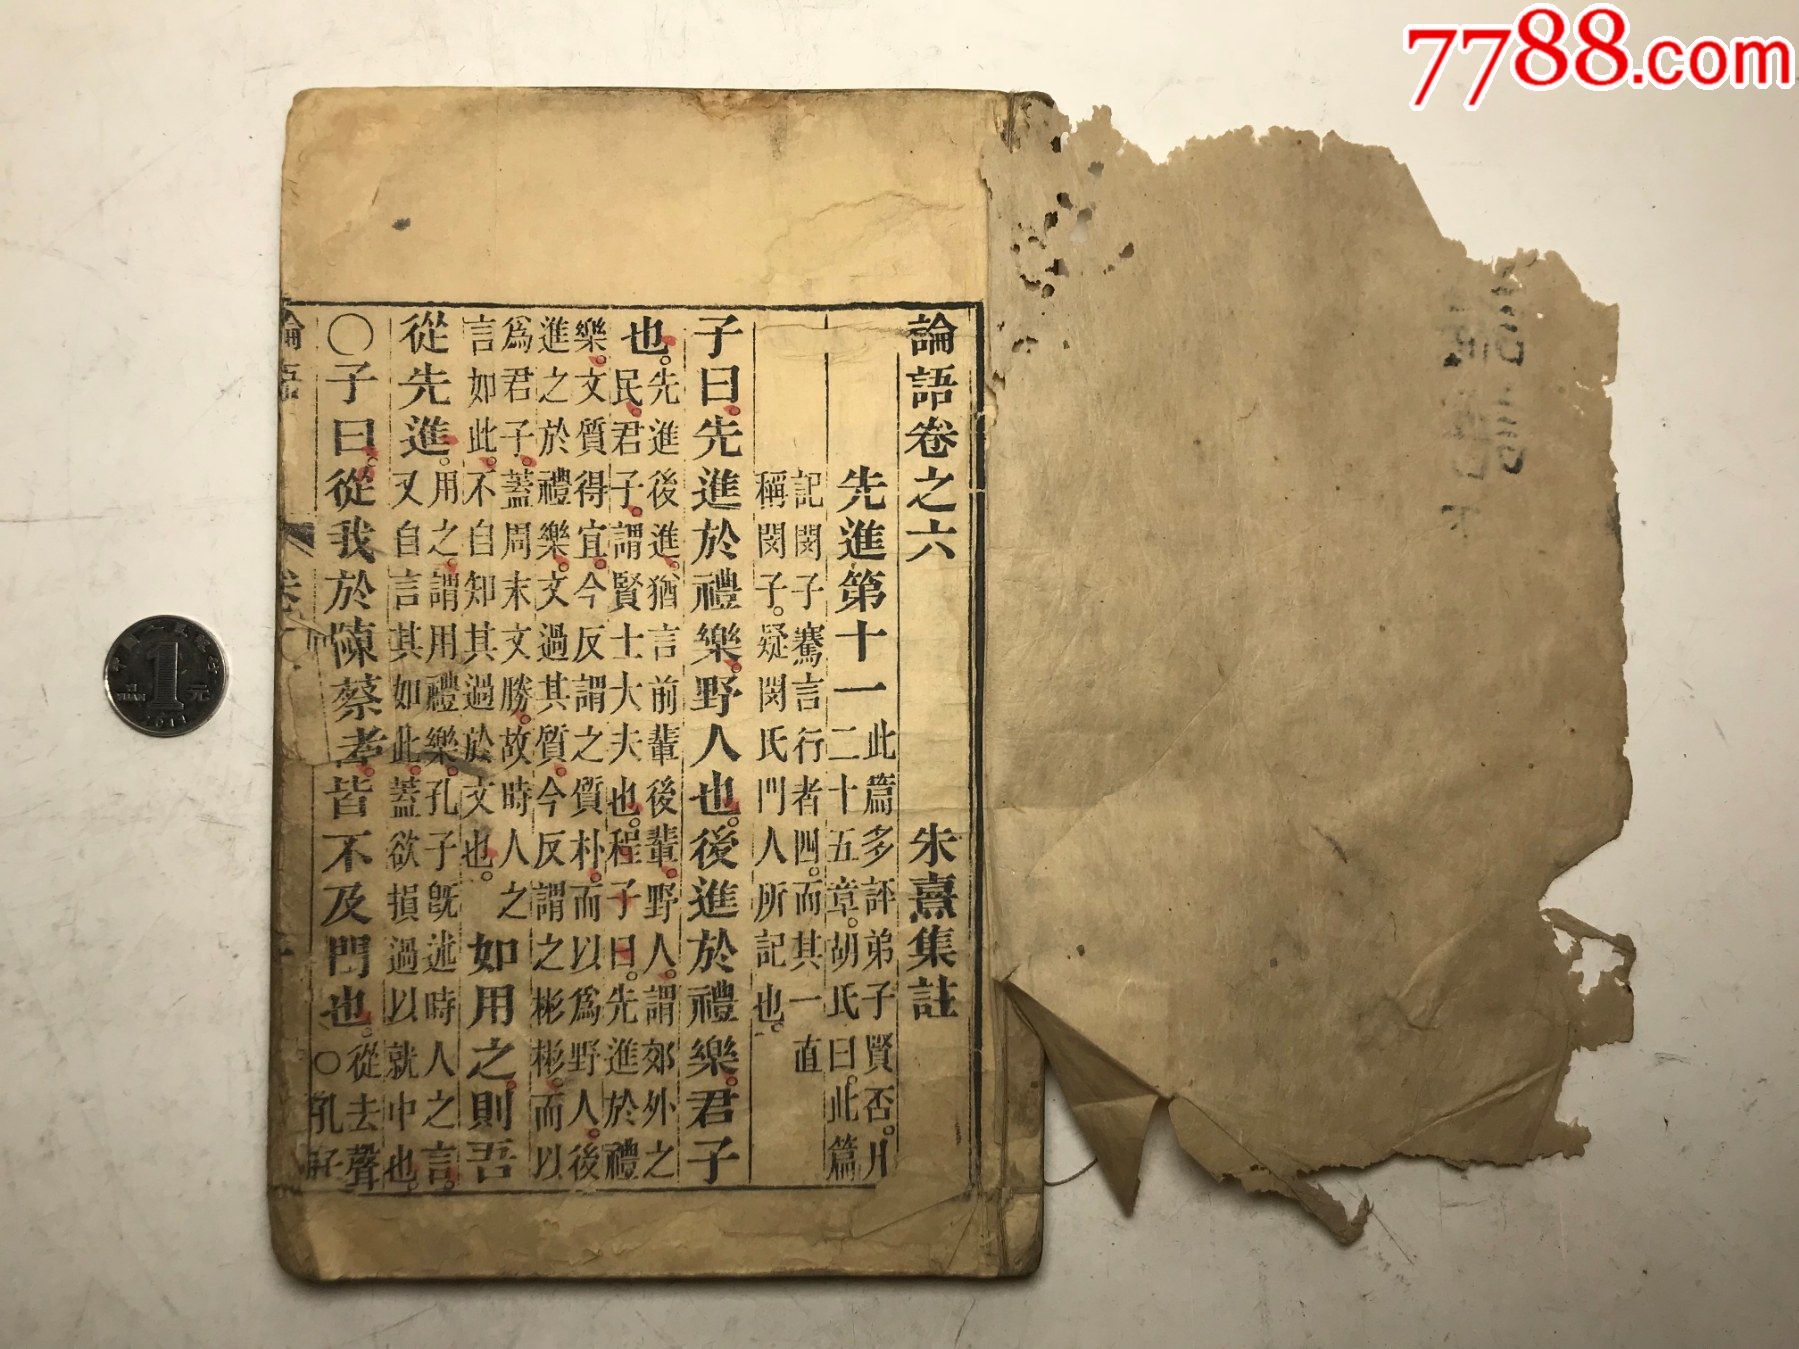 7788.com
論語卷之六 朱熹集註
先進第十一
此篇多評弟子賢否。凡
二十五章。胡氏曰。此篇
記閔子騫言行者四。而其一直
稱閔子。疑閔氏門人所記也。
子曰。先進於禮樂。野人也。後進於禮樂。君子
也。
先進後進。猶言前輩後輩。野人。謂郊外之
民。君子。謂賢士大夫也。程子曰。先進於禮
樂。文質得宜。今反謂之質朴。而以爲野人。後
進之於禮樂。文過其質。今反謂之彬彬。而以
爲君子。蓋周末文勝。故時人之
言如此。不自知其過於文也。
如用之。則吾
從先進。
用之。謂用禮樂。孔子旣述時人之言。
又自言其如此。蓋欲損過以就中也。
○子曰。從我於陳蔡者。皆不及門也。
從去聲
○孔
論語 卷
1
元
YUAN